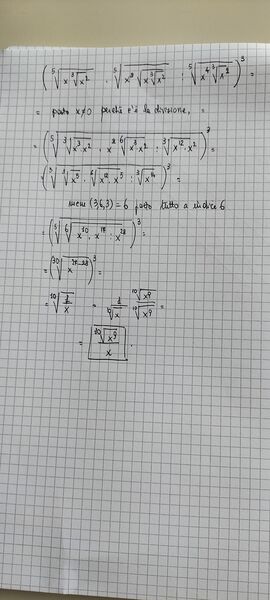 (⁵√(x ³√x²) · ⁵√(x² √(x ³√x²)) : ⁵√(x⁴ ³√x²))³ =
= posto x≠0 perché c'è la divisione, =
= (⁵√(³√(x³·x²) · x² ⁶√(x³·x²) : ³√(x¹²·x²)))³ =
(⁵√(³√x⁵ · ⁶√(x¹²·x⁵) : ³√x¹⁴))³ =
mcm (3,6,3) = 6 porto tutto a indice 6
= (⁵√(⁶√(x¹⁰ · x : x²⁸)))³ =
= (³⁰√x)³ =
= ¹⁰√(1/x) = 1/¹⁰√x · ¹⁰√x⁹/¹⁰√x⁹ =
= ¹⁰√x⁹/x .